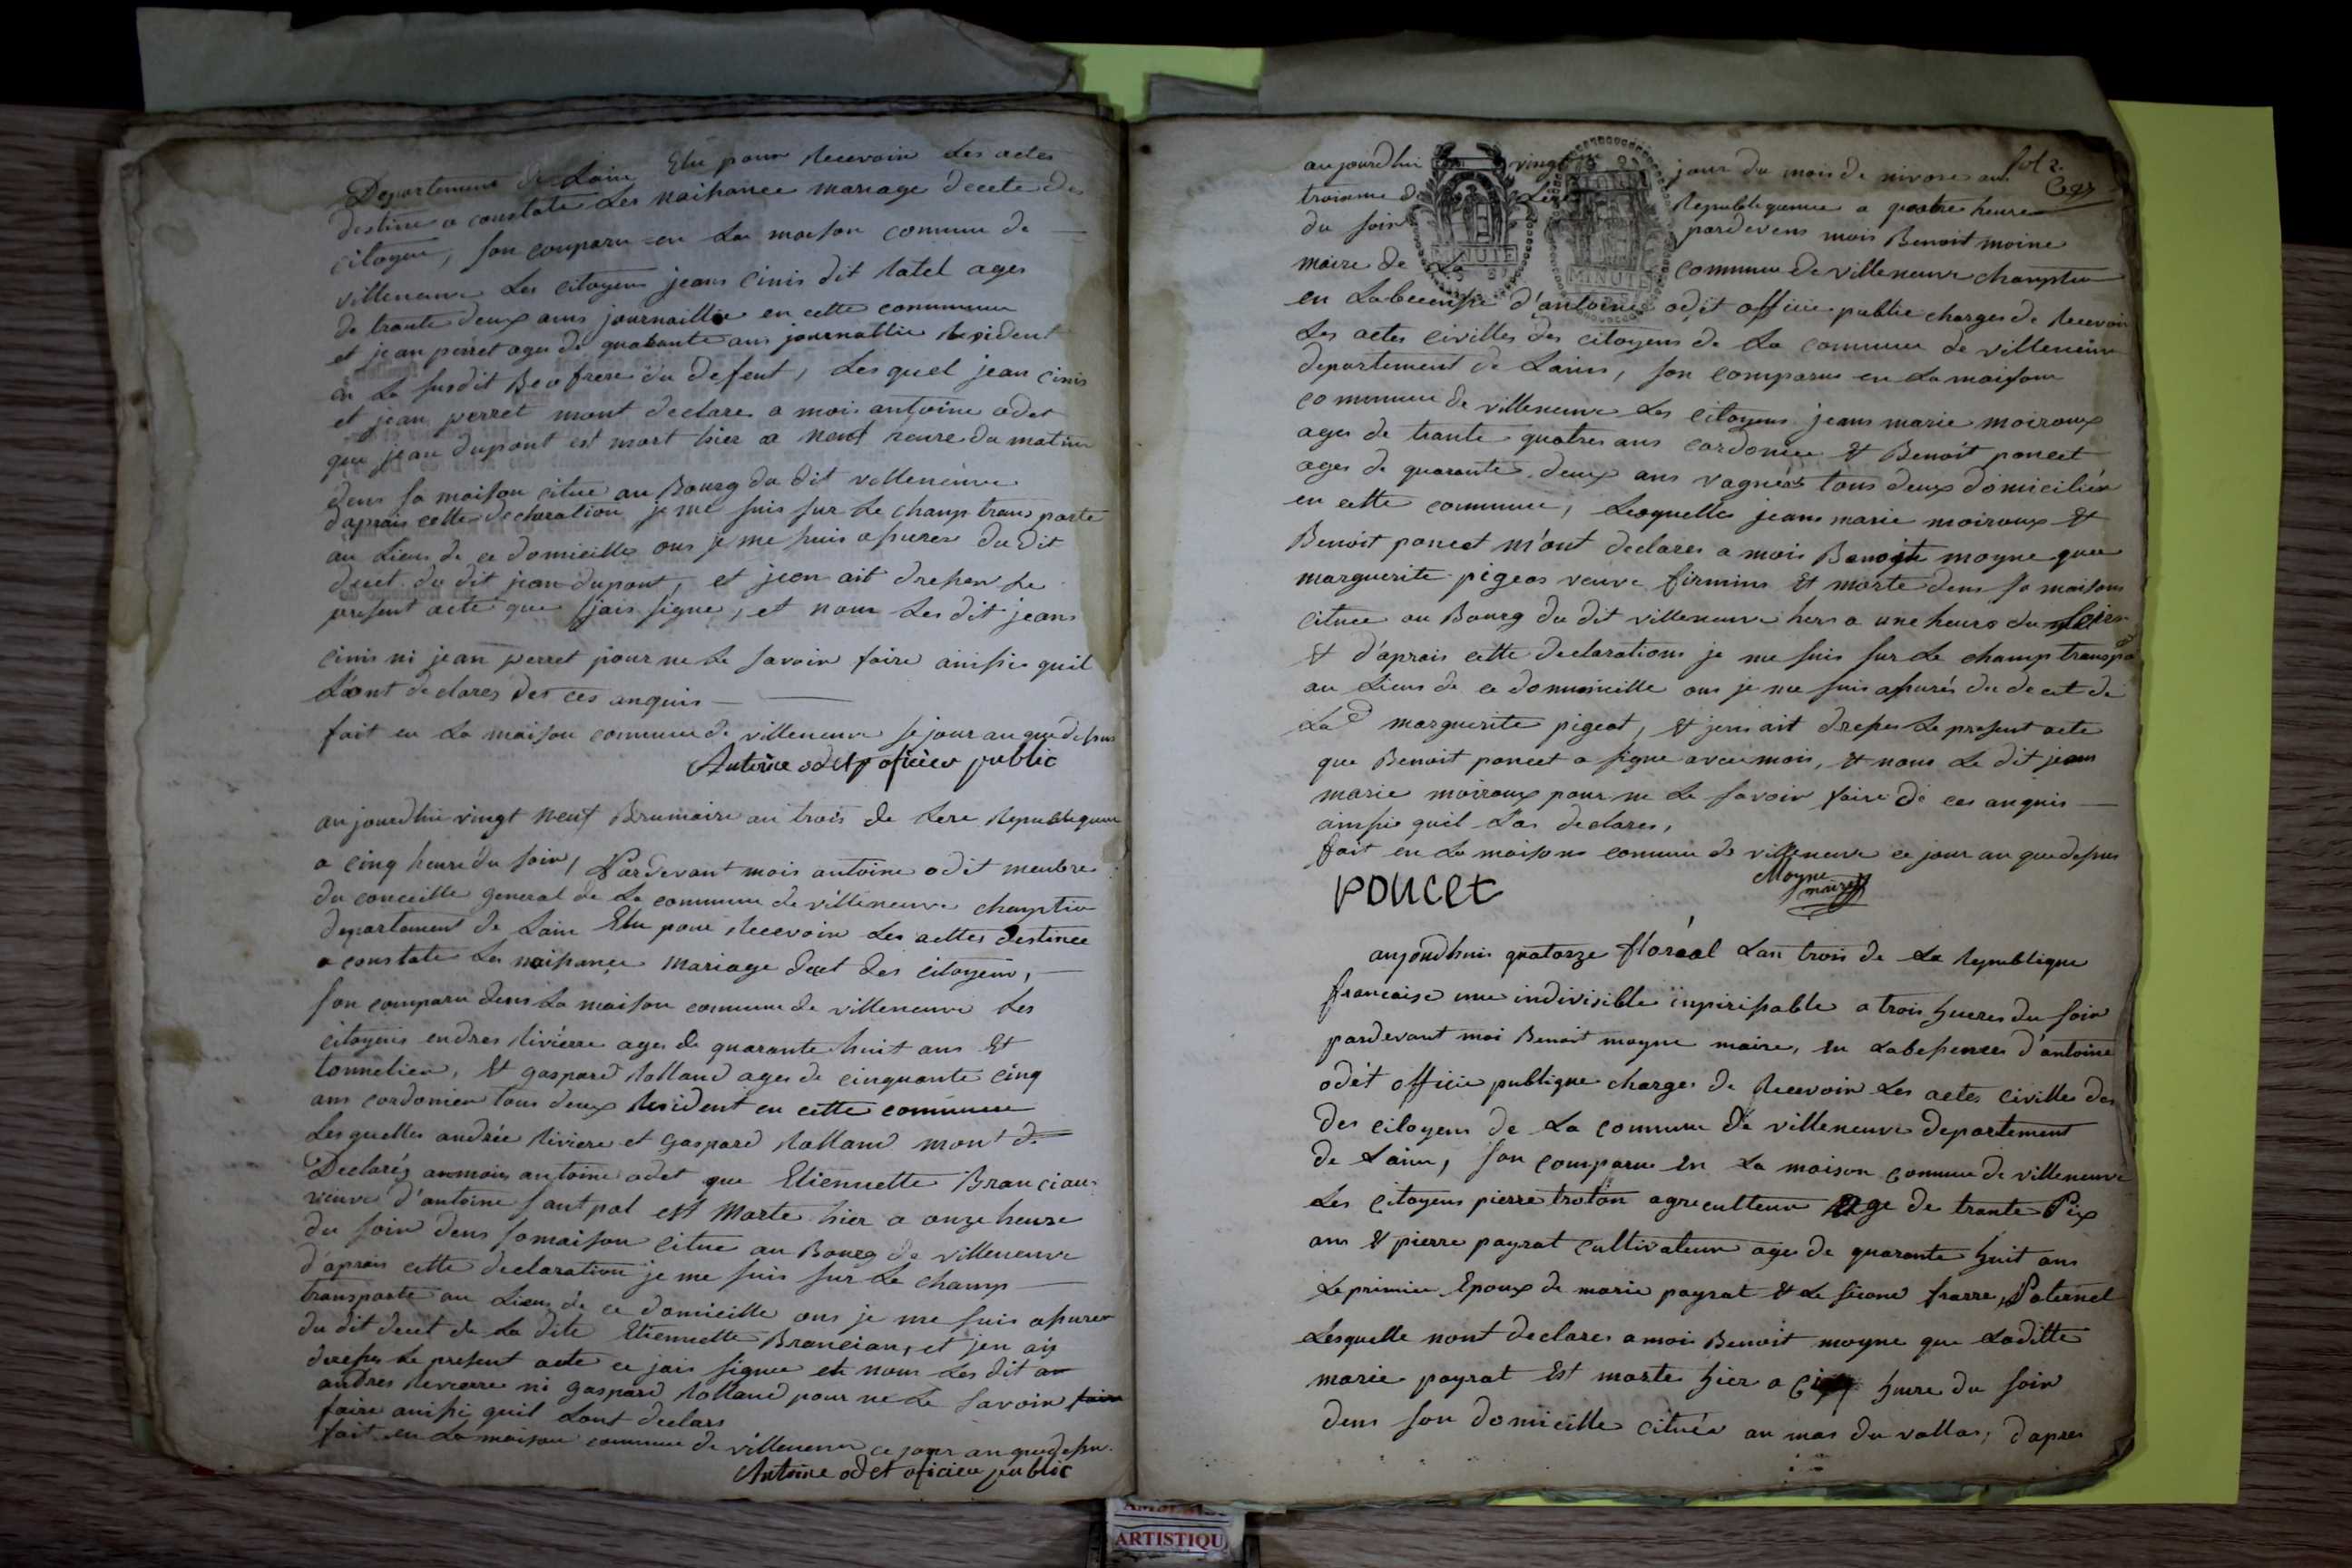 Departement de Lain Elu pour Recevoir Les actes
destine a constate Les naissance mariage decete des
citoyen, son comparu en La maison commune de
villeneuve Les citoyens jean cinis dit Ratel ages
de trante deux ans journaillie en cette commune
et jean perret ages de quarante ans journallie Resident
en Le susdit Beofrere du defent, Lesquel jean cinis
et jean perret mont declare a mois antoine odet
que jean dupont est mort hier a neuf heure du matin
dens sa maison citue au Bourg du dit villeneuve
d'aprais cette declaration je me suis sur Le champ transporte
au Lieus de ce domicille ous je me suis assurer du dit
decet du dit jean dupont, et jeon ait dresser Le
present acte que jais signe, et nom Les dit jeans
cinis ni jean perret pour ne Le savoir faire ainssi quil
L'aont declares des ces anquis
fait en La maison commune de villeneuve Se jour an que dessus
Antoine odet oficier public
aujourdhui vingt neuf Brumaire an trois de Lere Republiquene
a cinq heure du soir, Pardevant mois antoine odit menbre
du conceille general de La commune de villeneuve champtin
departement de Lain Elu pour Recevoir Les acttes destinee
a constate La naissance Mariage decet des citoyens,
son comparu dens La maison commune de villeneuve Les
citoyens endres Rivierre ages de quarante huit ans Et
tonnelier, Et gaspard Rolland ages de cinquante cinq
ans cordonier tous deux Resident en cette commune
Lesquelles andrée Riviere et Gaspard Rolland mont de
Declaréz anmois antoine odet que Etiennette Brancian
veuve d'antoine santpol est Morte hier a onze heure
du soir dens samaison citue au Bourg de villeneuve
d'aprais cette declaration je me suis sur Le champ
transporte au Lieus de ce domicille ous je me suis assurer
du dit decet de La dite Etiennette Brancian, et jen ait
dresser Le present acte ce jais signee et nom Les dit an
andres Rivierre ni gaspard Rolland pour ne Le savoir faire
faire ainssi quil Lont declars
fait en La maison commune de villeneuve ce jour an que dessu
Antoine odet oficier public
fol 2.
aujourdhui vingt jour du mois de nivose an
troisieme de Lere Republiquenne a quatre heure
du soir pardevens mois Benoit moine
MINUTE
MINUTE
maire de La commune de villeneuve champtin
en Labcensse d'antoine odit officie public charges de Recevoir
Les actes civilles des citoyens de La commune de villeneuve
departement de Lains, son comparus en La maisson
commune de villeneuve Les citoyens jeans marie moiroux
ages de trante quatres ans cordonie Et Benoit poncet
ages de quarante deux ans vagnés tous deux domiciliér
en cette commune, Lesquelles jeans marie moiroux Et
Benoit poncet m'ont declares a mois Benoite moyne que
marguerite pigeos veuve firmins Et morte dens sa maisons
cituee au Bourg du dit villeneuve hers a une heure du soire
Et d'aprais cette declarations je me suis sur Le champ transpo
au Lieus de ce dommicille ous je me suis assurés du decet de
La d marguerite pigeot, Et jens ait dresser Le present acte
que Benoit poncet a signe avec mois, Et nons Le dit jeans
marie moiroux pour ne Le savoir faire de ces anquis
ainssi quil L'as declares,
fait en La maisons commune de villeneuve ce jour an que dessus
poncet Moyne
maire
aujoudhuis quatorze floréal Lan trois de La Republique
francaise une indivisible inpirissable a trois hueres du soir
pardevant moi Benoit moyne maire, en Labessences d'antoine
odét officie publique charges de Recevoir Les actes civilles des
des citoyens de La commune de villeneuve departement
de Lain, son comparu En La maison commune de villeneuve
Les citoyens pierre troton agreculteur age de trante six
ans Et pierre payrat cultivateur ages de quarante huit ans
Le primier Epoux de marie payrat Et Le second frarre Paternel
Lesquelle nont declares amois Benoit moyne que Laditte
marie payrat Est morte hier a huere du soir
dens son domicille cituée au mas du vallas, d'apres
ARTISTIQU